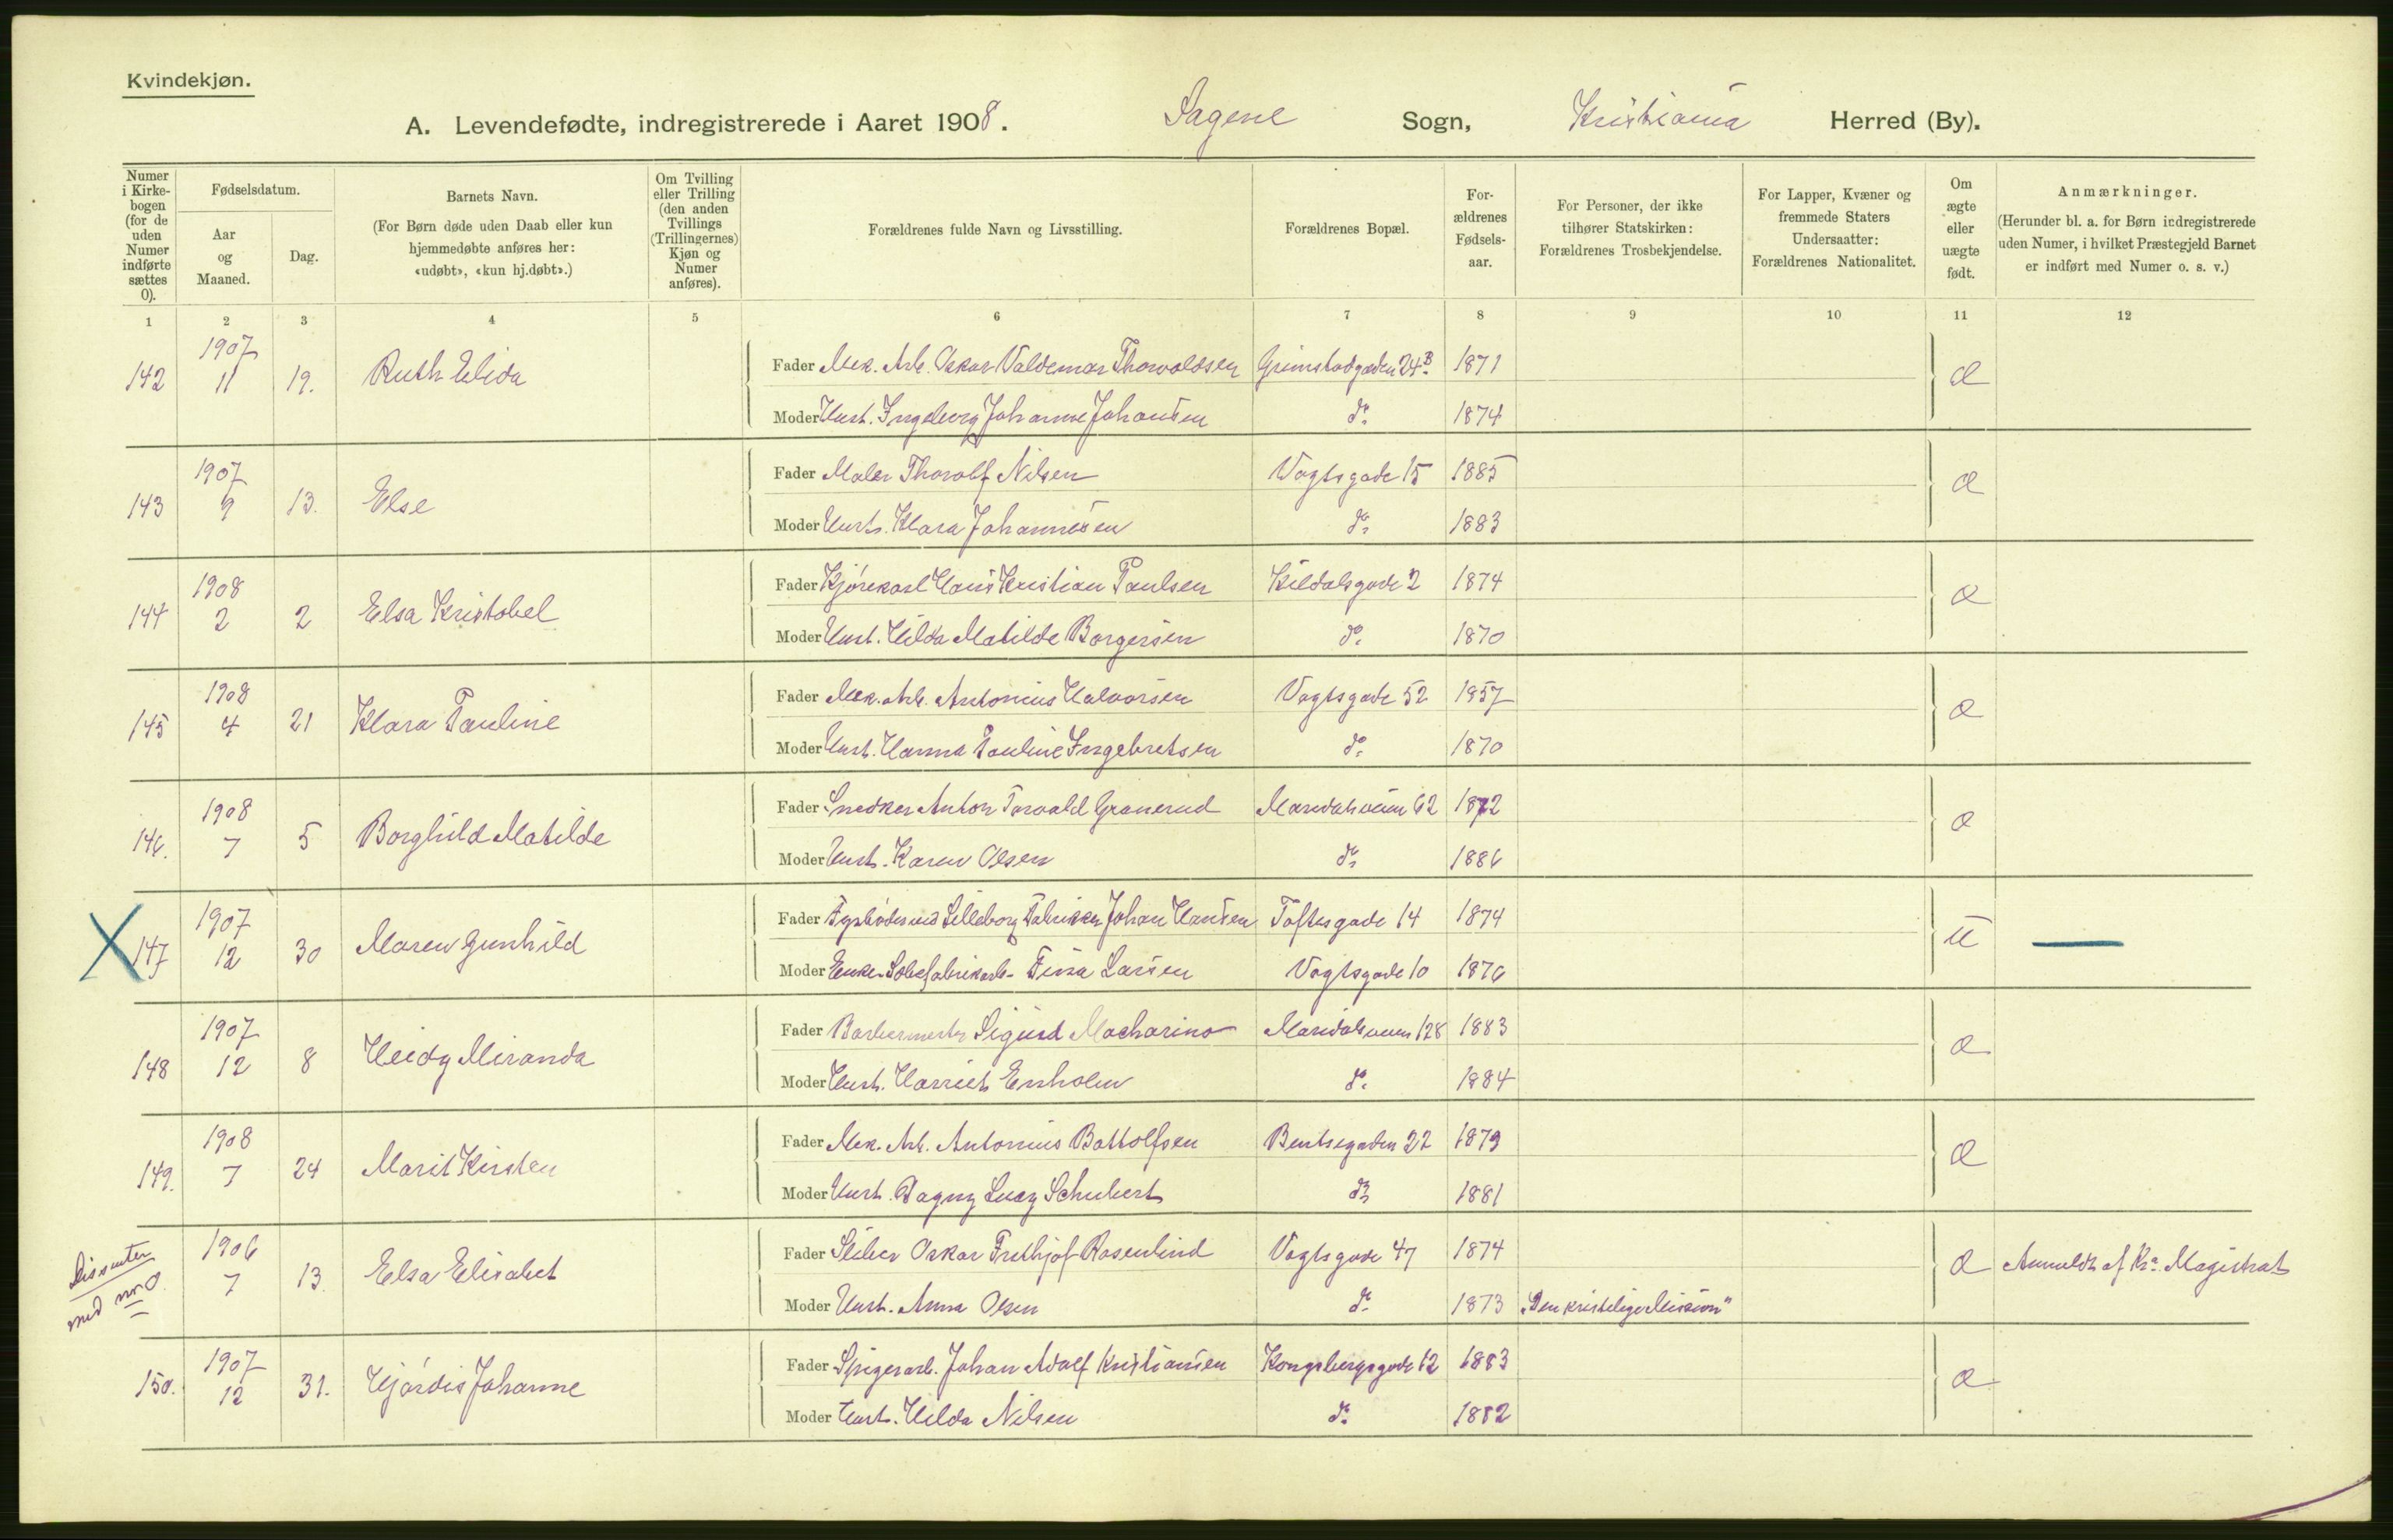 Kvindekjøn.
A. Levendefødte, indregistrerede i Aaret 1908. Sagene Sogn, Kristiania Herred (By).
Numer i Kirkebogen (for de uden Numer indførte sættes 0).
Fødselsdatum.
Aar og Maaned.
Dag.
Barnets Navn.
(For Børn døde uden Daab eller kun hjemmedøbte anføres her: «udøbt», «kun hj.døbt».)
Om Tvilling eller Trilling (den anden Tvillings (Trillingernes) Kjøn og Numer anføres).
Forældrenes fulde Navn og Livsstilling.
Forældrenes Bopæl.
Forældrenes Fødselsaar.
For Personer, der ikke tilhører Statskirken: Forældrenes Trosbekjendelse.
For Lapper, Kvæner og fremmede Staters Undersaatter: Forældrenes Nationalitet.
Om ægte eller uægte født.
Anmærkninger.
(Herunder bl. a. for Børn indregistrerede uden Numer, i hvilket Præstegjeld Barnet er indført med Numer o. s. v.)
1 2 3 4 5 6 7 8 9 10 11 12
142 1907 11 19. Ruth Elida Fader Mek. Arb. Oskar Valdemar Thorvaldsen Grimstadgaden 24B. 1871 æ
Moder Hust. Ingeborg Johanne Johansen do. 1874
143 1907 9 13. Else Fader Maler Thorolf Nilsen Vogtsgade 15 1885 æ
Moder Hust. Klara Johannesen do. 1883
144 1908 2 2 Elsa Kristobel Fader Kjørekarl Hans Kristian Paulsen Kildalsgade 2 1874 æ
Moder Hust. Hilda Matilde Borgersen do. 1870
145 1908 4 21 Klara Pauline Fader Mek. Arb. Antonius Halvorsen Vogtsgade 52 1857 æ
Moder Hust. Hanna Pauline Ingebretsen do. 1870
146. 1908 7 5 Borghild Matilde Fader Snedker Anton Torvald Granerud Maridalsveien 62 1872 æ
Moder Hust. Karen Olsen do. 1886
X 147 1907 12 30 Maren Gunhild Fader Fyrbøder ved Lilleborg Fabrikker Johan Hansen Toftesgade 14 1874 u —
Moder Enke Fina Larsen Vogtsgade 10 1876
148 1907 12 8 Heidy Miranda Fader Barbermester Sigurd Macharino Maridalsveien 128 1883 æ
Moder Hust. Harriet Enholm do. 1884
149. 1908 7 24 Marit Kirsten Fader Mek. Arb. Antonius Bottolfsen Bentsegaden 22 1879 æ
Moder Hust. Dagny Lucy Schubert do. 1881
Dissenter med no. 0 1906 7 13. Elsa Elisabet Fader Sliber Oskar Frithjof Rosenlind Vogtsgade 47 1874 æ Anmeldt af Kra. Magistrat
Moder Hust. Anna Olsen do. 1873 "Den kristelige Mission"
150. 1907 12 31. Hjørdis Johanne Fader Spigerarb. Johan Adolf Kristiansen Kongsbergsgade 12 1883 æ
Moder Hust. Hilda Nilsen do. 1882